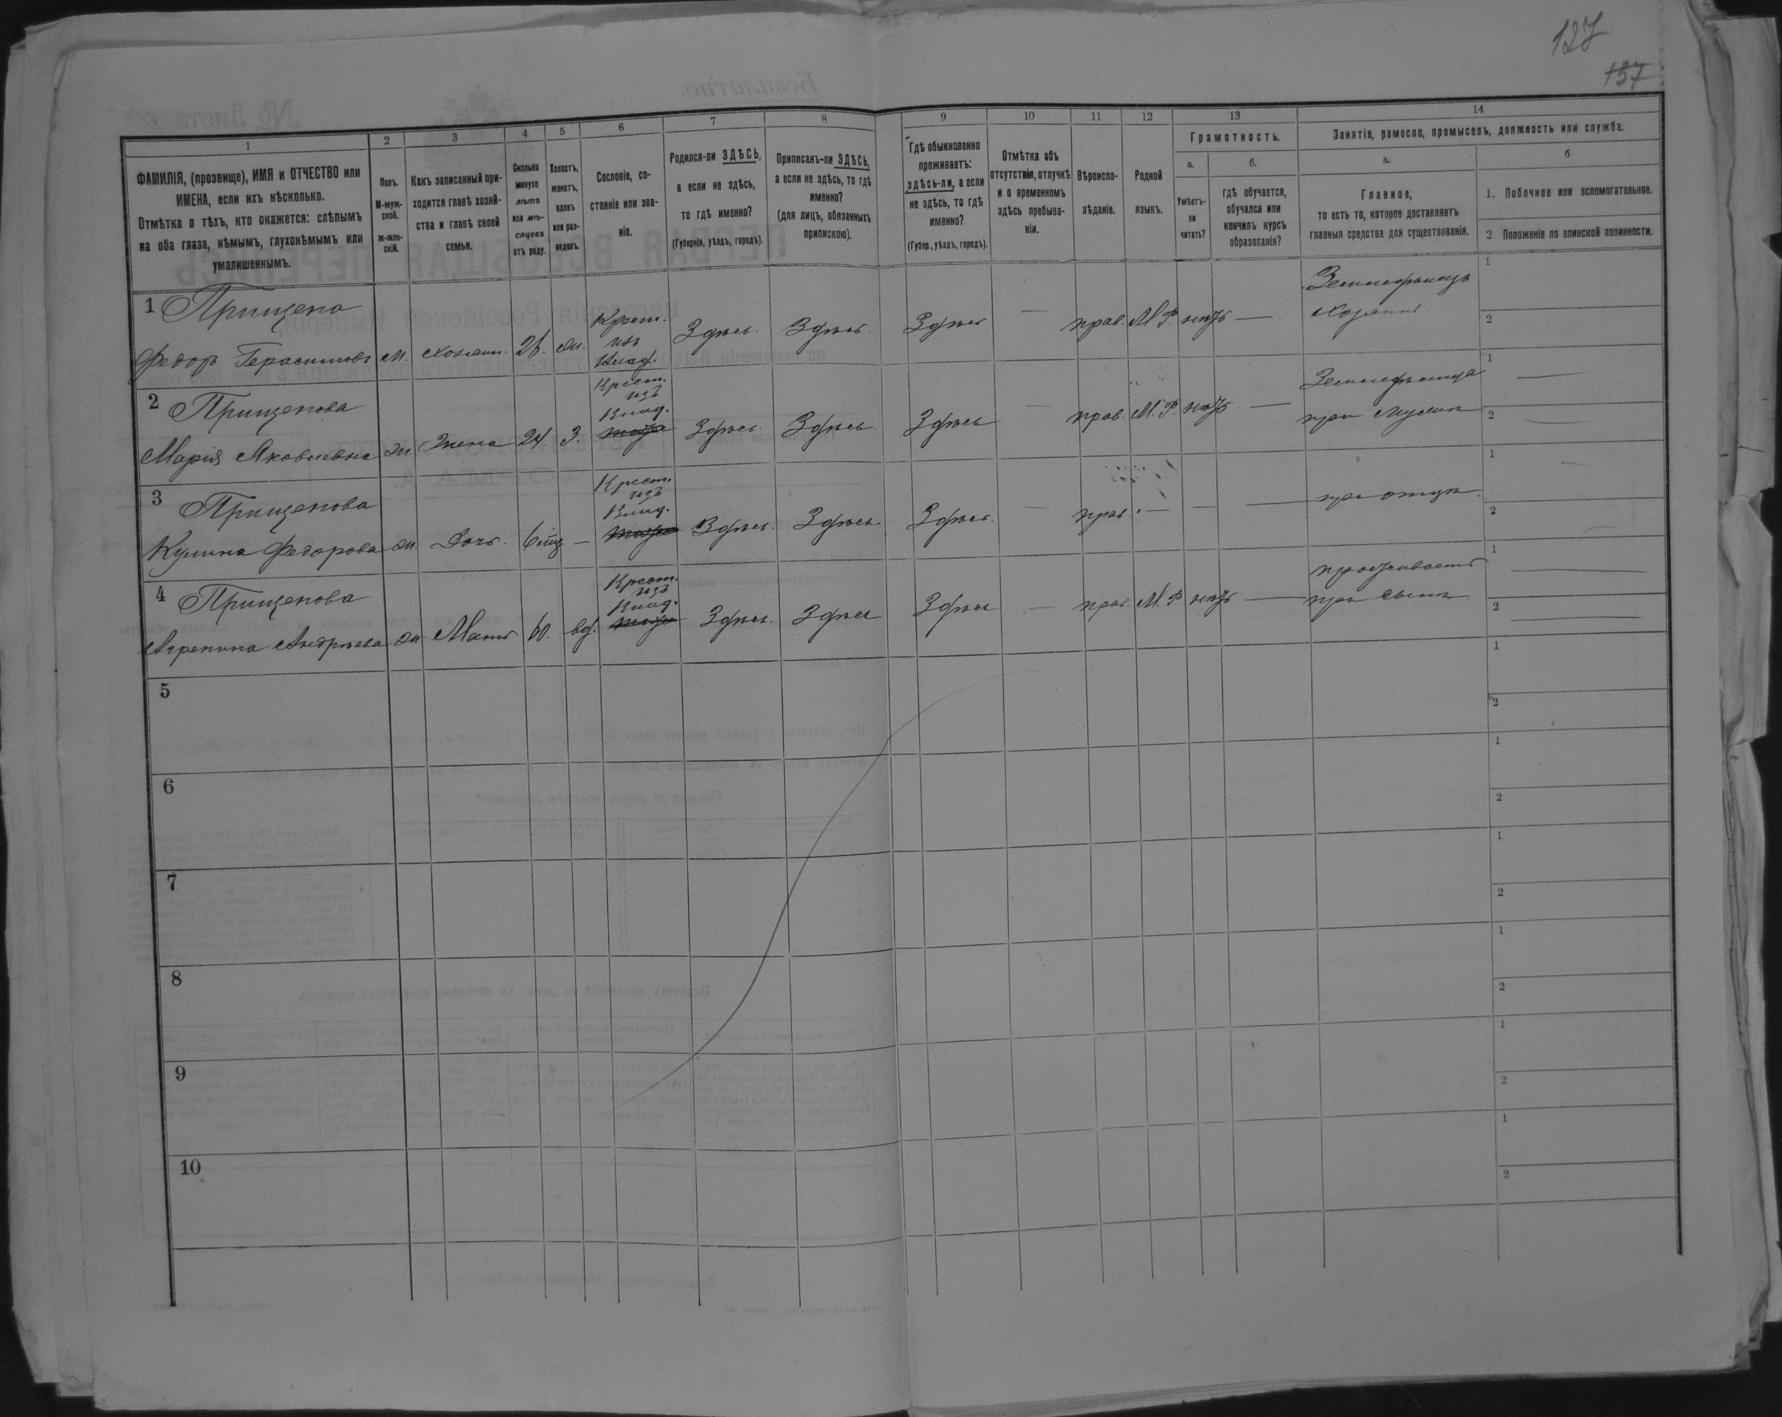 127
137
1
2
3
4
5
6
7
8
9
10
11
12
13
14
ФАМИЛІЯ, (прозвище), ИМЯ и ОТЧЕСТВО или
ИМЕНА, если ихъ нѣсколько.
Отмѣтка о тѣхъ, кто окажется: слѣпымъ
на оба глаза, нѣмымъ, глухонѣмымъ или
умалишеннымъ.
Полъ.
М-муж-
ской.
Ж-жен-
скій.
Какъ записанный при-
ходится главѣ хозяй-
ства и главѣ своей
семьи.
Сколько
минуло
лѣтъ
или мѣ-
сяцевъ
отъ роду.
Холостъ,
женатъ,
вдовъ
или раз-
веденъ.
Сословіе, со-
стояніе или зва-
ніе.
Родился-ли ЗДѢСЬ,
а если не здѣсь,
то гдѣ именно?
(Губернія, уѣздъ, городъ).
Приписанъ-ли ЗДѢСЬ,
а если не здѣсь, то гдѣ
именно?
(для лицъ, обязанныхъ
припискою).
Гдѣ обыкновенно
проживаетъ:
здѣсь-ли, а если
не здѣсь, то гдѣ
именно?
(Губер., уѣздъ, городъ).
Отмѣтка объ
отсутствіи, отлучкѣ
и о временномъ
здѣсь пребыва-
ніи.
Вѣроиспо-
вѣданіе.
Родной
языкъ.
Грамотность.
а.
Умѣетъ-
ли
читать?
б.
гдѣ обучается,
обучался или
кончилъ курсъ
образованія?
Занятіе, ремесло, промыселъ, должность или служба.
а.
Главное,
то есть то, которое доставляетъ
главныя средства для существованія.
б
1. Побочное или вспомогательное.
2 Положеніе по воинской повинности.
1 Прищепа
Федоръ Герасимовъ м. хозяин. 26. ж. Крест. изъ Влад. Здѣсь. Здѣсь Здѣсь — прав. М. Р. нѣтъ — Земледѣлецъ хозяинъ
1
2
2 Прищепова
Марія Яковлевна ж. Жена 24 З. Крест. изъ Влад. Здѣсь Здѣсь Здѣсь — прав. М. Р. нѣтъ — Земледѣлица при мужѣ
1 —
2 —
3 Прищепова
Кулина Федорова ж. Дочь. — Крест. изъ Влад. Здѣсь. Здѣсь Здѣсь — прав. — — — при отцѣ.
1 —
2 —
4 Прищепова
Агрепина Андрѣева ж Мать 60. вд. Крест. изъ Влад. Здѣсь. Здѣсь Здѣсь — прав. М. Р. нѣтъ — при сынѣ
1 —
2 —
5
1
2
6
1
2
7
1
2
8
1
2
9
1
2
10
1
2